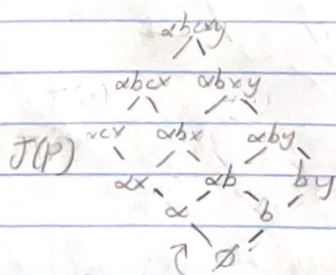 abcxy
abcx abxy
acx abx aby
J(P)
ax ab by
a b
∅